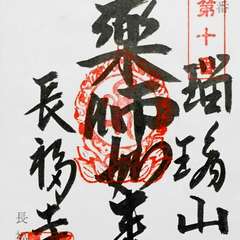 第十番
瑠璃山
薬師如来
長福寺
長